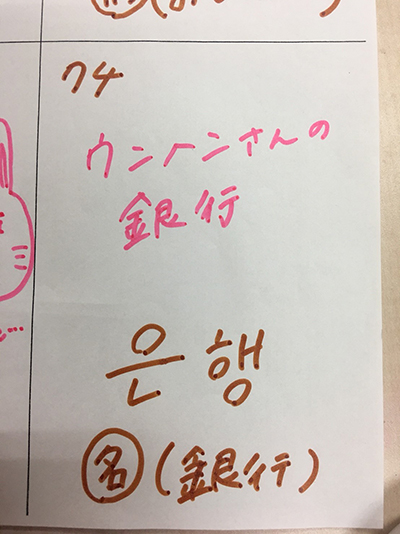 74
ウンヘンさんの
銀行
은행
名(銀行)